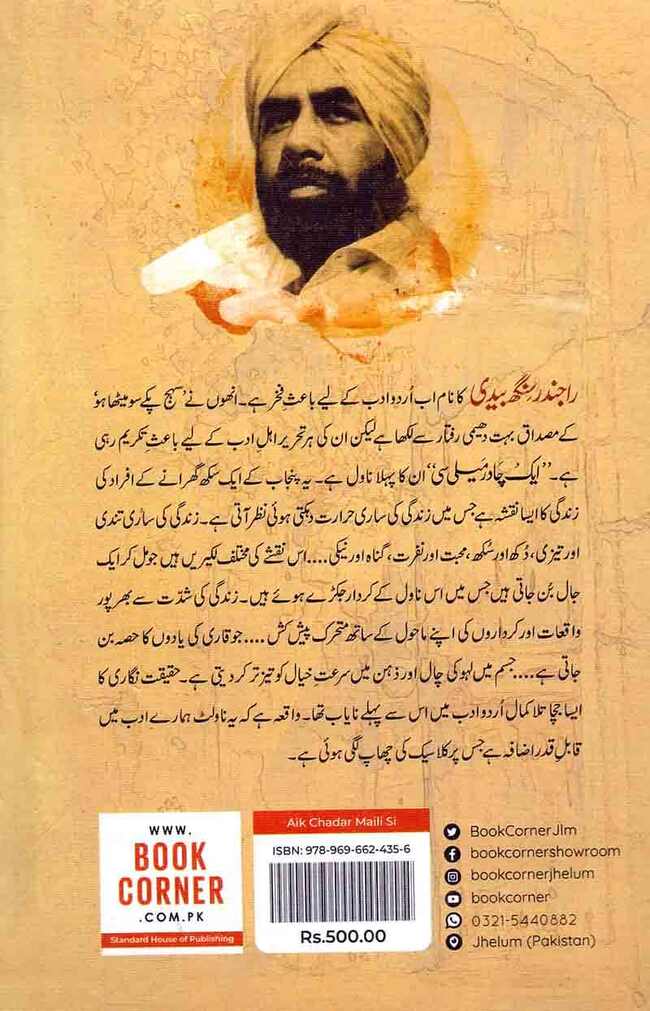 راجندر سنگھ بیدی کا نام اب اُردو ادب کے لیے باعثِ فخر ہے۔ انھوں نے ’سہج پکے سو میٹھا ہو‘
کے مصداق بہت دھیمی رفتار سے لکھا ہے لیکن ان کی ہر تحریر اہلِ ادب کے لیے باعثِ تکریم رہی
ہے۔ ’’ایک چادر میلی سی‘‘ ان کا پہلا ناول ہے۔ یہ پنجاب کے ایک سکھ گھرانے کے افراد کی
زندگی کا ایسا نقشہ ہے جس میں زندگی کی ساری حرارت دہکتی ہوئی نظر آتی ہے۔ زندگی کی ساری تندی
اور تیزی، دُکھ اور سُکھ، محبت اور نفرت، گناہ اور نیکی .... اس نقشے کی مختلف لکیریں ہیں جو مل کر ایک
جال بُن جاتی ہیں جس میں اس ناول کے کردار جکڑے ہوئے ہیں۔ زندگی کی شدّت سے بھرپور
واقعات اور کرداروں کی اپنے ماحول کے ساتھ متحرک پیش کش .... جو قاری کی یادوں کا حصہ بن
جاتی ہے .... جسم میں لہو کی چال اور ذہن میں سرعتِ خیال کو تیز تر کر دیتی ہے۔ حقیقت نگاری کا
ایسا جچا تلا کمال اُردو ادب میں اس سے پہلے نایاب تھا۔ واقعہ ہے کہ یہ ناولٹ ہمارے ادب میں
قابلِ قدر اضافہ ہے جس پر کلاسیک کی چھاپ لگی ہوئی ہے۔
WWW.
BOOK
CORNER
.COM.PK
Standard House of Publishing
Aik Chadar Maili Si
ISBN: 978-969-662-435-6
Rs.500.00
BookCornerJlm
bookcornershowroom
bookcornerjhelum
bookcorner
0321-5440882
Jhelum (Pakistan)